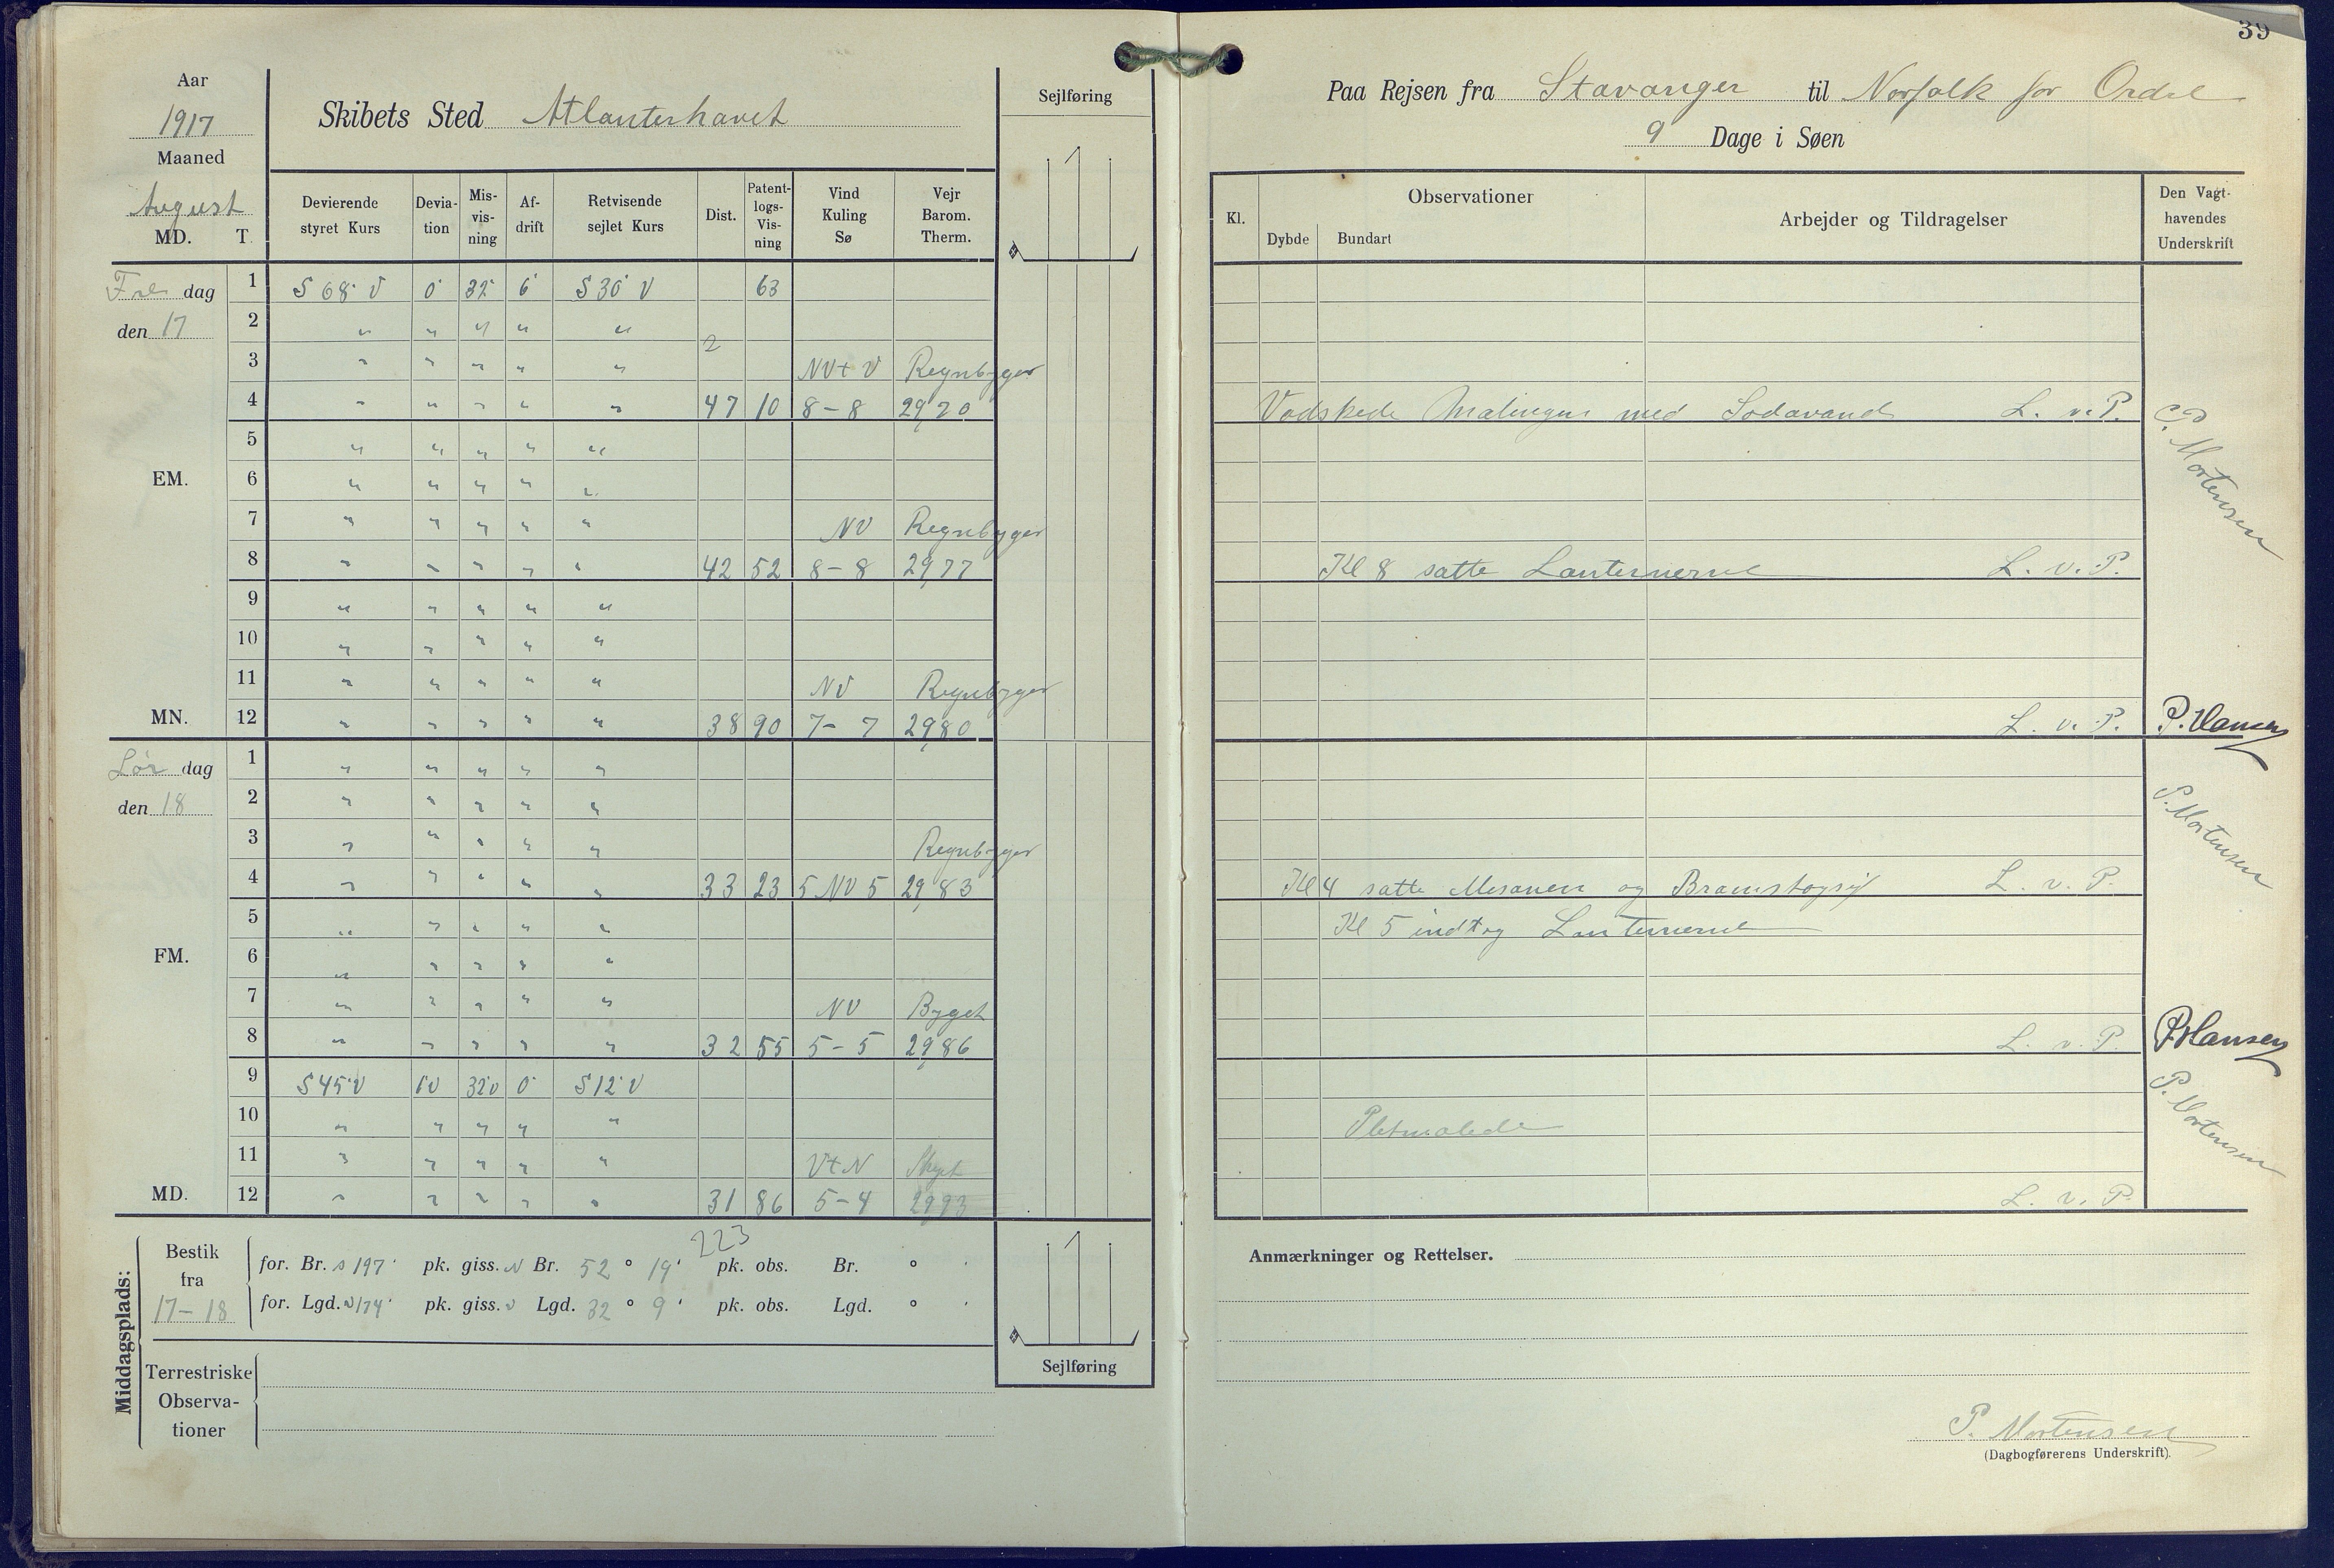 39
Aar
1917
Maaned
August
MD. T.
Skibets Sted Atlanterhavet
Sejlføring
Devierende styret Kurs
Devia-tion
Mis-vis-ning
Af-drift
Retvisende sejlet Kurs
Dist.
Patent-logs-Vis-ning
Vind Kuling Sø
Vejr Barom. Therm.
Fre dag 1 S 68° V 0° 32° 6° S 30° V 63
den 17 2 " " " " "
2
3 " " " " " NV t V Regnbyger
4 " " " " " 47 10 8-8 29,70
5 " " " " "
EM. 6 " " " " "
7 " " " " " NV Regnbyger
8 " " " " " 42 52 8-8 29,77
9 " " " " "
10 " " " " "
11 " " " " " NV Regnbyger
MN. 12 " " " " " 38 90 7-7 29,80
Lør dag 1 " " " " "
den 18 2 " " " " "
3 " " " " " Regnbyger
4 " " " " " 33 23 5 NV 5 29,83
5 " " " " "
FM. 6 " " " " "
7 " " " " " NV Byget
8 " " " " " 32 55 5-5 29,86
9 S 45° V 1° V 32° V 0° S 12° V
10 " " " " "
11 " " " " " V t N Skyet
MD. 12 " " " " " 31 86 5-4 2993
223
Middagsplads:
Bestik fra 17-18
for. Br. S 197' pk. giss. N Br. 52 ° 19' pk. obs. Br. ° '
for. Lgd. V 174' pk. giss. V Lgd. 32 ° 9' pk. obs. Lgd. ° '
Sejlføring
Terrestriske
Observa-
tioner
Paa Rejsen fra Stavanger til Norfolk for Ordre
9 Dage i Søen
Kl.
Observationer
Dybde Bundart
Arbejder og Tildragelser
Den Vagt-
havendes
Underskrift
Vadskede Malingen med Sodavand L. v. P.
P. Mortensen
Kl 8 satte Lanternerne L. v. P.
L. v. P. P. Hansen
P. Mortensen
Kl 4 satte Mesanen og Bramstagsejl L. v. P.
Kl 5 indtog Lanternerne
L. v. P. P Hansen
P. Mortensen
Pletmalede
L. v. P.
Anmærkninger og Rettelser.
P. Mortensen
(Dagbogførerens Underskrift).